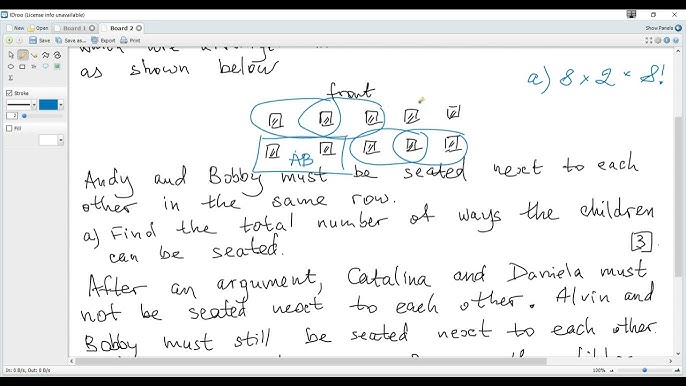 IDroo (License info unavailable)
Board 1
Board 2
Show Panels
Open
Save
Save as...
Export
Print
Undo
Redo
which are
as shown below
a) 8 × 2 × 8!
front
Stroke
2
Fill
AB
Andy and Bobby must be seated next to each
other in the same row.
a) Find the total number of ways the children
can be seated.
[3]
After an argument, Catalina and Daniela must
not be seated next to each other. Alvin and
Bobby must still be seated next to each other
In: 0 B/s, Out: 0 B/s
100%